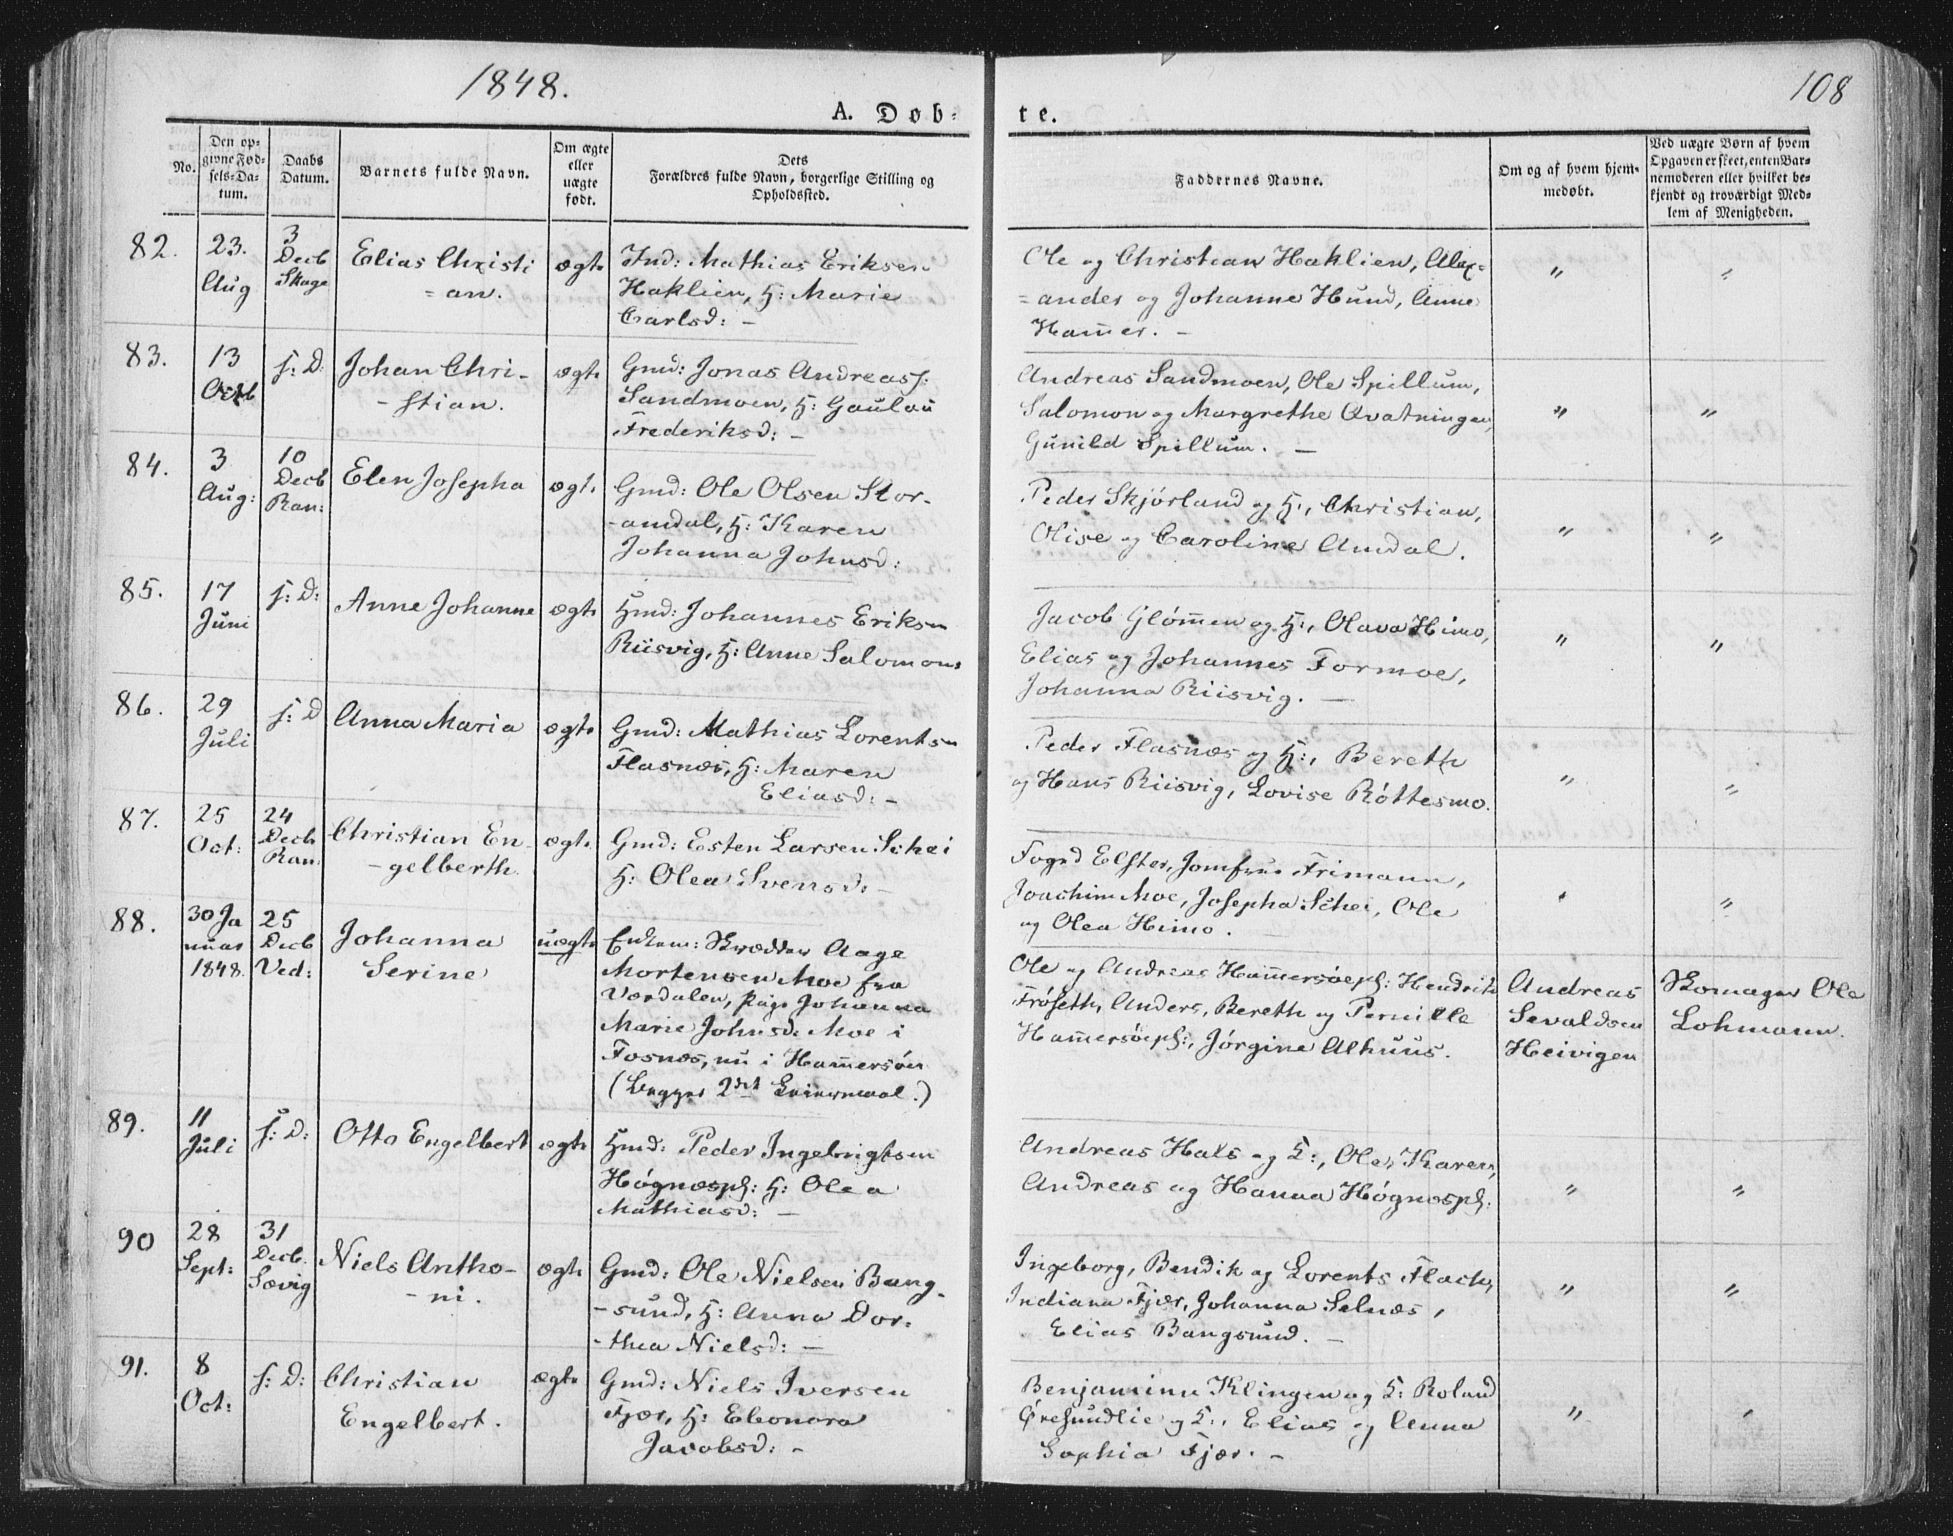 1848.
108
A. Døb-
te.
No.
Den op-
givne Fød-
sels-Da-
tum.
Daabs
Datum.
Barnets fulde Navn.
Om ægte
eller
uægte
født.
Dets
Forældres fulde Navn, borgerlige Stilling og
Opholdssted.
Faddernes Navne.
Om og af hvem hjem-
medøbt.
Ved uægte Børn af hvem
Opgaven er skeet, enten Bar-
nemoderen eller hvilket be-
kjendt og troværdigt Med-
lem af Menigheden.
82.
23.
Aug
3
Decb
Skage
Elias Christi
= an.
ægte
Ind: Mathias Eriksen
Haklien, H: Marie
Carlsd: -
Ole og Christian Haklien, Alex=
= ander og Johanne Hund, Anne
Ham̄er. -
"
"
83.
13
Octb
s: D:
Johan Chri-
- stian.
ægte
Gmd: Jonas Andreass:
Sandmoen, H: Gaulau
Frederiksd: -
Andreas Sandmoen, Ole Spillum,
Salomon og Margrethe Qvatningen,
Gunild Spillum. -
"
"
84.
3
Aug:
10
Decb
Ran:
Elen Josepha
ægt.
Gmd: Ole Olsen Stor-
- amdal, H: Karen
Johanna Johnsd:
Peder Skjørland og H:, Christian,
Olise og Caroline Amdal.
"
"
85.
17
Juni
s: D:
Anne Johanne
ægte
Hmd: Johannes Eriksen
Riisvig, H: Anne Salomons
Jacob Gløm̄en og H:, Olava Himo,
Elias og Johannes Formoe,
Johanna Riisvig. -
"
"
86.
29
Juli
s: D
Anna Maria
ægte
Gmd: Mathias Lorentsen
Flasnæs, H: Maren
Eliasd: -
Peder Flasnæs og H:, Bereth
og Hans Riisvig, Lovise Røttesmo.
"
"
87.
25
Oct:
24
Decb
Ran:
Christian En-
- gelberth.
ægte
Gmd: Esten Larsen Schei
H: Olea Svensd: -
Fogd Elster, Jomfrue Frimann,
Joachim Moe, Josepha Schei, Ole
og Olea Himo.
"
"
88.
30 Ja
nuar
1848.
25
Decb
Ved:
Johanna
Serine
uægte
Enkem: Skrædder Aage
Mortensen Moe fra
Værdalen, Pige Johanna
Marie Johnsd: Moe i
Fosnæs, nu i Ham̄ersøen
(Begges 2det Leiermaal.)
Ole og Andreas Ham̄ersøepl: Hendrik
Frøseth, Anders, Bereth og Pernille
Ham̄ersøepl:, Jørgine Alhuus.
Andreas
Sevaldsen
Heivigen
Skomager Ole
Lohmann.
89.
11
Juli
s: D:
Otto Engelbert
ægte
Hmd: Peder Ingebrigtsen
Høgnæspl: H: Olea
Mathiasd: -
Andreas Hals og K:, Ole, Karen,
Andreas og Hanna Høgnæspl:
"
"
90
28
Sept:
31
Decb.
Sævig
Niels Antho-
- ni.
ægte
Gmd: Ole Nielsen Bang-
- sund, H: Anna Dor-
- thea Nielsd: -
Ingeborg, Bendik og Lorents Flack,
Indiana Fjær, Johanna Selnæs,
Elias Bangsund. -
"
"
91.
8
Oct:
s: D:
Christian
Engelbert.
ægte
Gmd: Niels Iversen
Fjær, H: Eleonora
Jacobsd: -
Benjaminn Klingen og K: Roland
Øresundlie og K:, Elias og Anna
Sophia Fjær. -
"
"